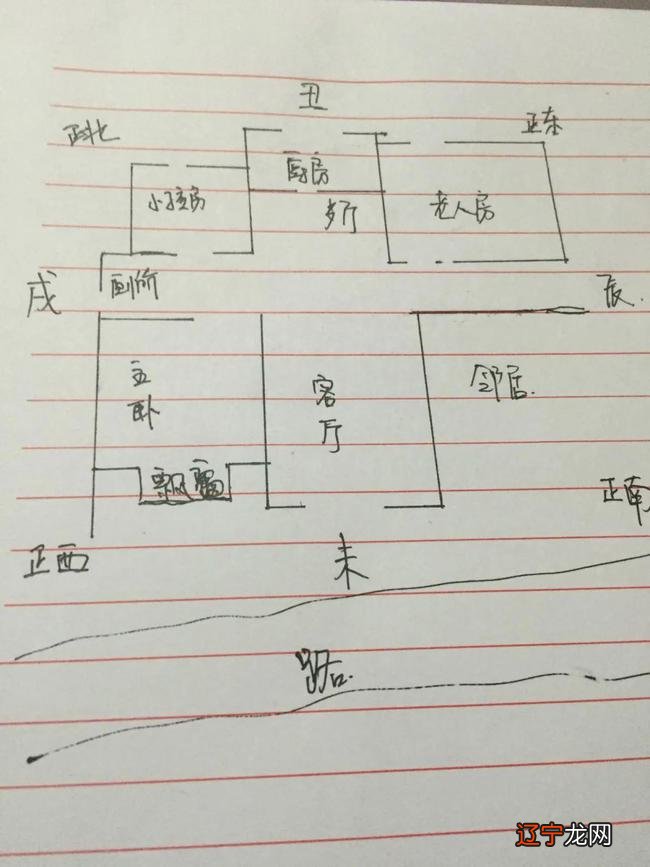 丑
正北
正东
厨房
小孩房
歺厅
老人房
戌
厕所
辰
主
卧
客
厅
邻居
飘窗
正南
正西
未
路
辽宁龙网